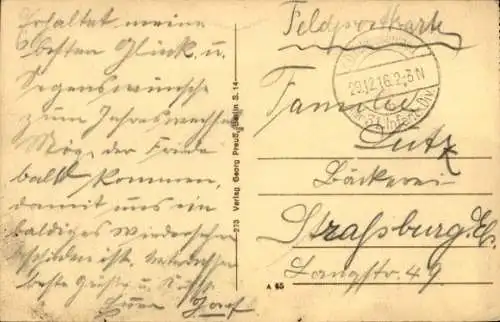 Erhaltet meine
besten Glück u.
Segenswünsche
zum Jahreswechsel
Mög. der Friede
bald kommen,
damit uns ein
baldiges Wiedersehen
beschieden ist.
beste Grüße u.
Euer
273 Verlag Georg Preuß, Berlin S. 14
Feldpostkarte
29.12.16. 2-3 N
der 31. Infant. Div.
Familie
Lutz
Bäckerei
Straßburg. Els.
Langstr. 49
A 65